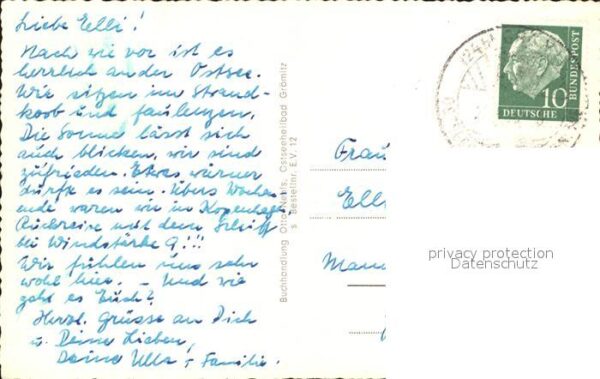 Liebe Elli!
Nach wie vor ist es
herrlich an der Ostsee.
Wir sitzen im Strand-
korb und faulenzen.
Die Sonne lässt sich
auch blicken, wir sind
zufrieden. Etwas wärmer
dürfte es sein. Übers Wochen-
ende waren wir in Kopenhagen
Rückreise mit dem Schiff
bei Windstärke 9!!!
Wir fühlen uns sehr
wohl hier. – Und wie
geht es Euch?
Herzl. Grüsse an Dich
u. Deine Lieben,
Deine Ulla + Familie.
Buchhandlung Otto Nelfs, Ostseeheilbad Grömitz
Bestellnr. E.V. 12
10
DEUTSCHE
BUNDESPOST
Frau
Elli
Mann
privacy protection
Datenschutz